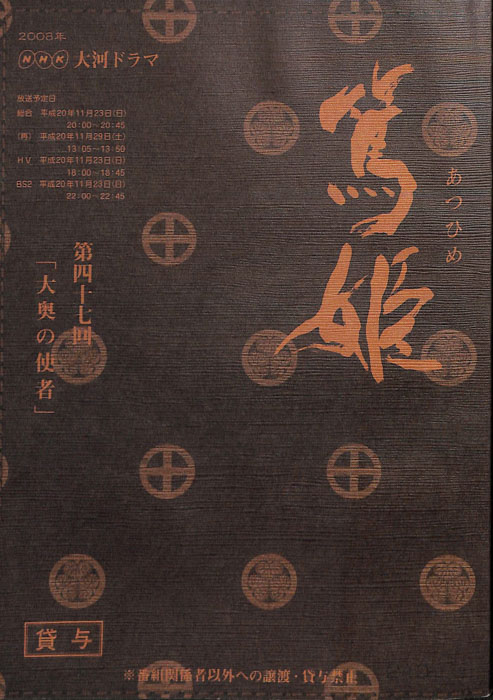 2008年
NHK 大河ドラマ
放送予定日
総合 平成20年11月23日(日)
20:00〜20:45
(再) 平成20年11月29日(土)
…13:05〜13:50
HV 平成20年11月23日(日)
18:00〜18:45
BS2 平成20年11月23日(日)
22:00〜22:45
篤姫
あつひめ
第四十七回
「大奥の使者」
貸与
※番組関係者以外への譲渡・貸与禁止